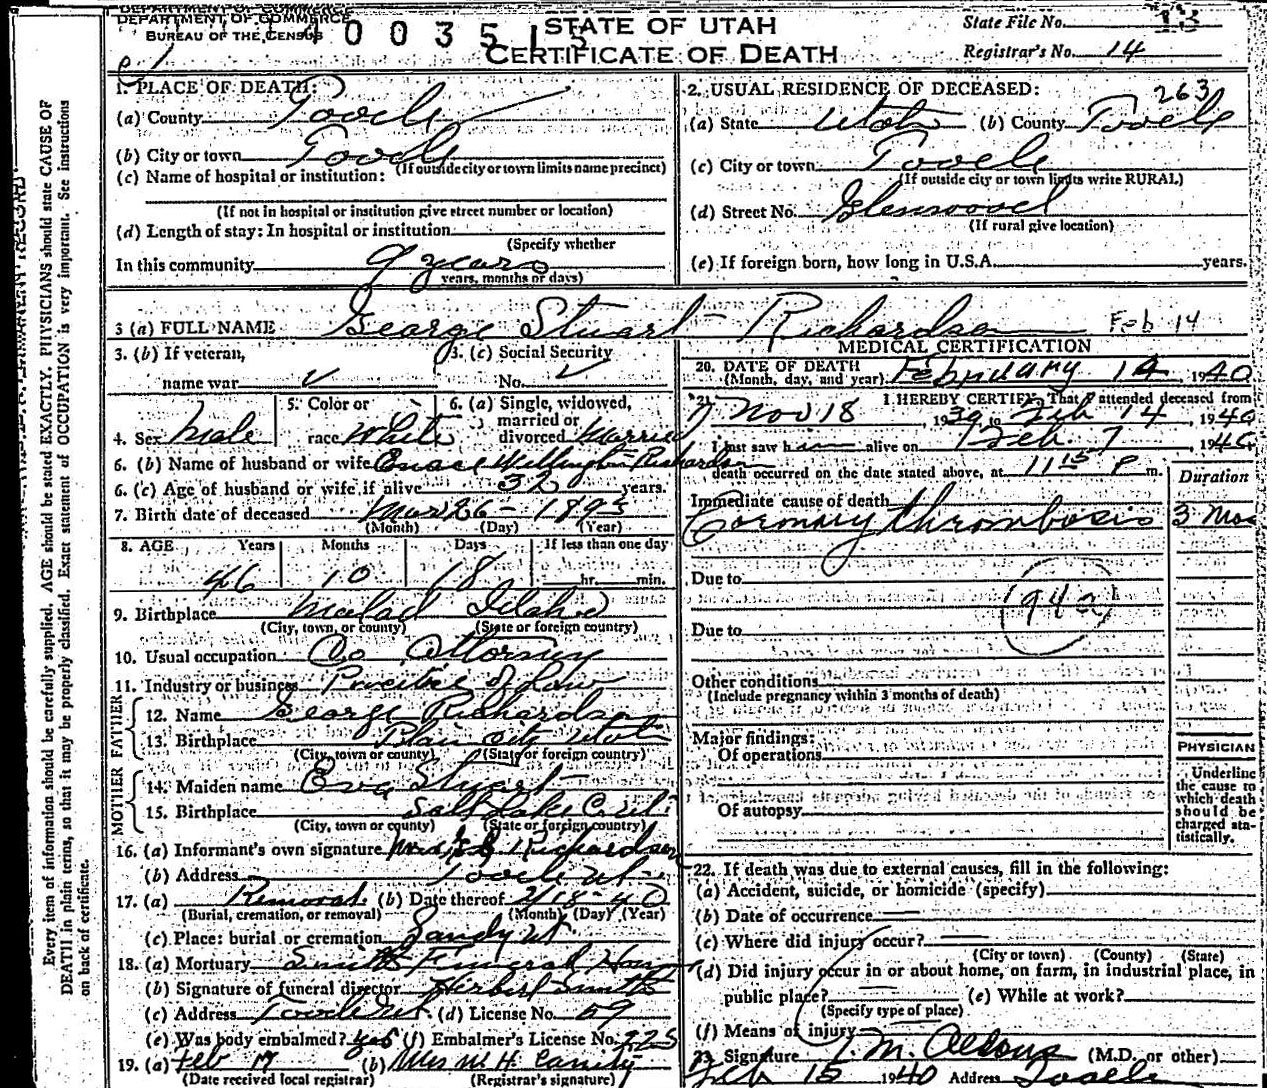 DEPARTMENT OF COMMERCE
BUREAU OF THE CENSUS
0 0 3 5 1 3
STATE OF UTAH
CERTIFICATE OF DEATH
State File No. 13
Registrar's No. 14
Every item of information should be carefully supplied. AGE should be stated EXACTLY. PHYSICIANS should state CAUSE OF
DEATH in plain terms, so that it may be properly classified. Exact statement of OCCUPATION is very important. See instructions
on back of certificate.
1. PLACE OF DEATH:
(a) County Tooele
(b) City or town Tooele
(If outside city or town limits name precinct)
(c) Name of hospital or institution:
(If not in hospital or institution give street number or location)
(d) Length of stay: In hospital or institution
(Specify whether
In this community 9 years
years, months or days)
2. USUAL RESIDENCE OF DECEASED: 263
(a) State Utah (b) County Tooele
(c) City or town Tooele
(If outside city or town limits write RURAL)
(d) Street No. Glenwood
(If rural give location)
(e) If foreign born, how long in U.S.A. years.
3 (a) FULL NAME George Stuart Richardson Feb 14
3. (b) If veteran,
name war
3. (c) Social Security
No.
4. Sex Male
5. Color or
race White
6. (a) Single, widowed,
married or
divorced Married
6. (b) Name of husband or wife Richardson
6. (c) Age of husband or wife if alive 32 years.
7. Birth date of deceased Mar 26 - 1893
(Month) (Day) (Year)
8. AGE Years Months Days If less than one day
46 10 18 hr. min.
9. Birthplace Malad Idaho
(City, town, or county) (State or foreign country)
10. Usual occupation Co Attorney
11. Industry or business Practice of Law
FATHER
12. Name George Richardson
13. Birthplace Plain City Utah
(City, town or county) (State or foreign country)
MOTHER
14. Maiden name Eva Stuart
15. Birthplace Salt Lake C
(City, town or county) (State or foreign country)
16. (a) Informant's own signature Mrs Richardson
(b) Address Tooele Ut
17. (a) Removal (b) Date thereof 2/18-40
(Burial, cremation, or removal) (Month) (Day) (Year)
(c) Place: burial or cremation Sandy Ut
18. (a) Mortuary Smith Funeral Home
(b) Signature of funeral director Herbert Smith
(c) Address Tooele Ut (d) License No. 59
(e) Was body embalmed? yes (f) Embalmer's License No. 225
19. (a) Feb 17 (b) Mrs W. H.
(Date received local registrar) (Registrar's signature)
MEDICAL CERTIFICATION
20. DATE OF DEATH
(Month, day, and year) February 14, 1940
21. I HEREBY CERTIFY, That I attended deceased from
Nov 18, 1939 to Feb 14, 1940
I last saw h im alive on Feb. 7, 1940
death occurred on the date stated above, at 11 15 P m.
Duration
Immediate cause of death
Coronary thrombosis 3 Mos
Due to
94a
Due to
Other conditions
(Include pregnancy within 3 months of death)
Major findings:
Of operations
Of autopsy
PHYSICIAN
Underline
the cause to
which death
should be
charged sta-
tistically.
22. If death was due to external causes, fill in the following:
(a) Accident, suicide, or homicide (specify)
(b) Date of occurrence
(c) Where did injury occur?
(City or town) (County) (State)
(d) Did injury occur in or about home, on farm, in industrial place, in
public place? (e) While at work?
(Specify type of place)
(f) Means of injury
23. Signature M. Aldous (M.D. or other)
Feb 15 1940 Address Tooele